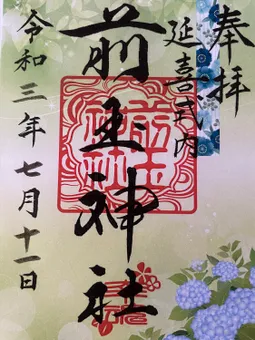 奉拝
延喜式内
前玉神社
令和三年七月十一日